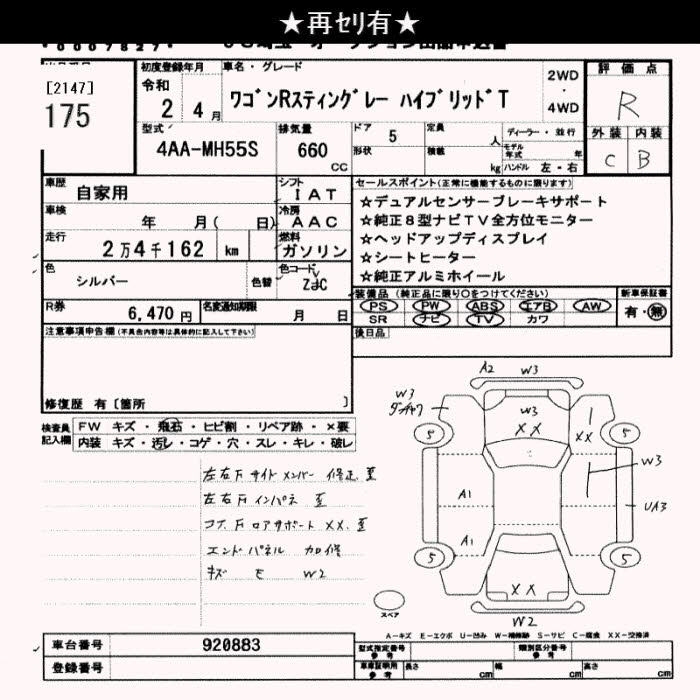 ★再ｾﾘ有★
[2147]
175
初度登録年月
令和
2 4 月
車名・グレード
ワゴンRスティングレー ハイブリッドT
2WD
・
4WD
評価点
R
外装 内装
C B
型式
4AA-MH55S
排気量
660
cc
ドア
5
形状
定員
人
積載
kg
ディーラー・並行
モデル年式 年
ハンドル 左・右
車歴
自家用
シフト
IAT
車検
年 月( 日)
冷房
AAC
走行
2万4千162 km
燃料
ガソリン
色
シルバー
色替
色コード
ZJC
R券
6,470 円
名変通知期限
月 日
セールスポイント(正常に機能するものに限ります)
☆デュアルセンサーブレーキサポート
☆純正8型ナビTV全方位モニター
☆ヘッドアップディスプレイ
☆シートヒーター
☆純正アルミホイール
装備品 (純正品に限り○をつけてください)
PS PW ABS エアB AW
SR ナビ TV カワ
新車保証書
有・無
後日品
注意事項申告欄(不具合内容等は具体的に記入して下さい)
修復歴 有〔箇所 〕
検査員記入欄
FW キズ・飛石・ヒビ割・リペア跡・×要
内装 キズ・汚レ・コゲ・穴・スレ・キレ・破レ
左右Fサイドメンバー 修正、歪
左右Fインパネ 歪
コア、Fロアサポート XX、歪
エンドパネル カロ修
キズ E W2
A2 W3
W3
W3
XX
XX
5 5
W3
A1
UA3
A1
5 5
XX
W2
スペア
A−キズ E−エクボ U−凹み W−補修跡 S−サビ C−腐食 XX−交換済
車台番号 920883
登録番号
型式指定番号 参考
類別区分番号 参考
車庫証明用 参考
長さ cm 幅 cm 高さ cm